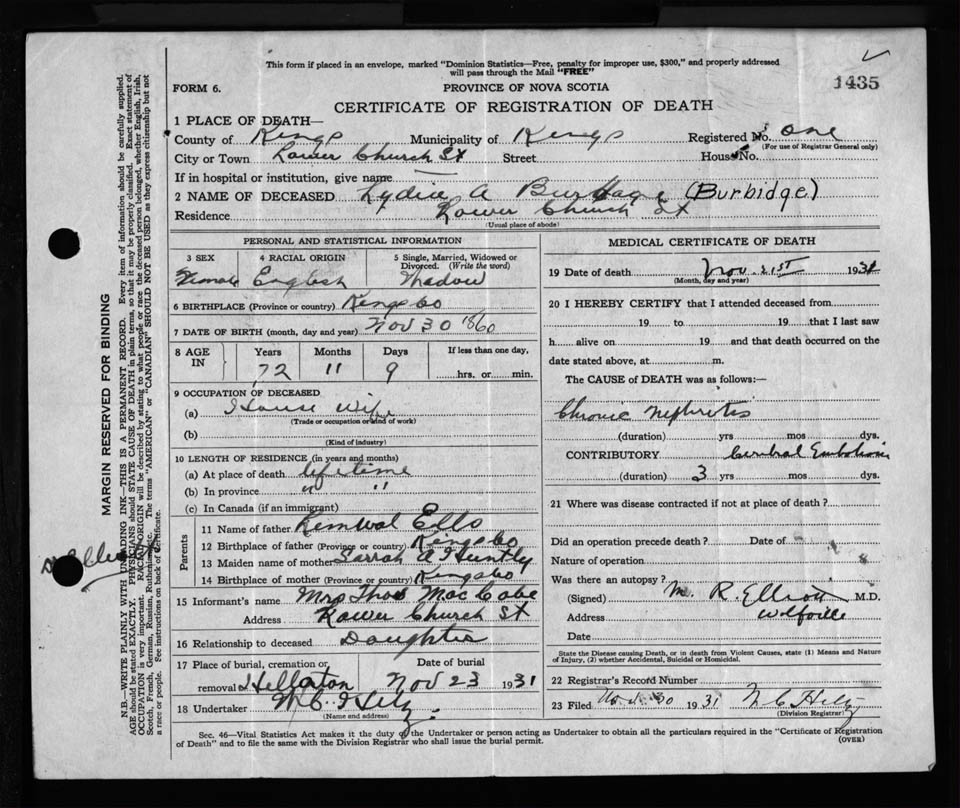 This form if placed in an envelope, marked "Dominion Statistics—Free, penalty for improper use, $300," and properly addressed
will pass through the Mail "FREE"
1435
FORM 6.
PROVINCE OF NOVA SCOTIA
CERTIFICATE OF REGISTRATION OF DEATH
1 PLACE OF DEATH—
County of Kings Municipality of Kings Registered No. one
(For use of Registrar General only)
City or Town Lower Church St Street House No.
If in hospital or institution, give name —
2 NAME OF DECEASED Lydia A Burbage (Burbidge)
Residence Lower Church St
(Usual place of abode)
PERSONAL AND STATISTICAL INFORMATION
3 SEX 4 RACIAL ORIGIN 5 Single, Married, Widowed or
Divorced. (Write the word)
Female English Widow
6 BIRTHPLACE (Province or country) Kings Co
7 DATE OF BIRTH (month, day and year) Nov 30 1860
8 AGE IN Years Months Days If less than one day,
72 11 9 hrs. or min.
9 OCCUPATION OF DECEASED
(a) House wife
(Trade or occupation or kind of work)
(b)
(Kind of industry)
10 LENGTH OF RESIDENCE (in years and months)
(a) At place of death lifetime
(b) In province " "
(c) In Canada (if an immigrant)
Parents
11 Name of father Ells
12 Birthplace of father (Province or country) Kings Co
13 Maiden name of mother Sarrah A Huntly
14 Birthplace of mother (Province or country) Kings Co
15 Informant's name Mrs Thos MacCabe
Address Lower Church St
16 Relationship to deceased Daughter
17 Place of burial, cremation or Date of burial
removal Hillerton Nov 23 1931
18 Undertaker W. C. Hiltz
(Name and address)
MEDICAL CERTIFICATE OF DEATH
19 Date of death Nov. 21st 1931
(Month, day and year)
20 I HEREBY CERTIFY that I attended deceased from
19 to 19 that I last saw
h alive on 19 and that death occurred on the
date stated above, at m.
The CAUSE of DEATH was as follows:—
Chronic Nephritis
(duration) yrs mos dys.
CONTRIBUTORY Cerebral Embolism
(duration) 3 yrs. mos. dys.
21 Where was disease contracted if not at place of death?
Did an operation precede death? Date of
Nature of operation
Was there an autopsy?
(Signed) M. R. Elliott M.D.
Address Wolfville
Date
State the Disease causing Death, or in death from Violent Causes, state (1) Means and Nature
of Injury, (2) whether Accidental, Suicidal or Homicidal.
22 Registrar's Record Number
23 Filed Nov. 30 1931 W C Hiltz
(Division Registrar)
Sec. 46—Vital Statistics Act makes it the duty of the Undertaker or person acting as Undertaker to obtain all the particulars required in the "Certificate of Registration
of Death" and to file the same with the Division Registrar who shall issue the burial permit.
(OVER)
MARGIN RESERVED FOR BINDING
N.B.—WRITE PLAINLY WITH UNFADING INK—THIS IS A PERMANENT RECORD. Every item of information should be carefully supplied.
AGE should be stated EXACTLY. PHYSICIANS should STATE CAUSE OF DEATH in plain terms, so that it may be properly classified. Exact statement of
OCCUPATION is very important. RACIAL ORIGIN will be described by stating to what people or race the deceased person belonged, whether English, Irish,
Scotch, French, German, Russian, Ruthenian, etc. The terms "AMERICAN" or "CANADIAN" SHOULD NOT BE USED as they express citizenship but not
a race or people. Fee instructions on back of Certificate.